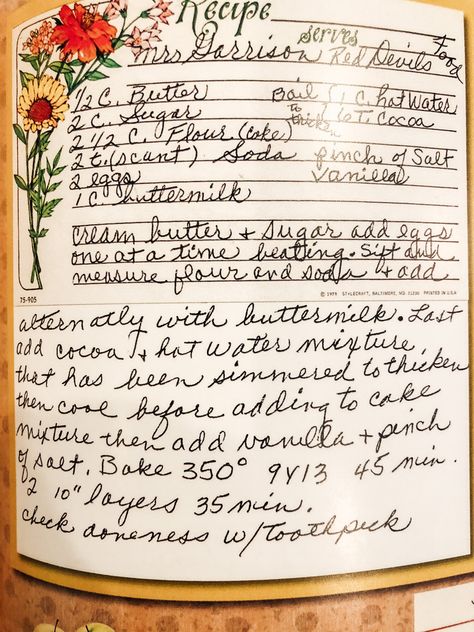 Recipe
serves
Mrs Garrison Red Devils Food
1/2 C. Butter Boil 1 C. hot Water
2 C. Sugar to thicken 6 T. Cocoa
2 1/2 C. Flour (Cake)
2 t. (scant) Soda pinch of Salt
2 eggs Vanilla
1 C buttermilk
Cream butter + sugar add eggs
one at a time beating. Sift and
measure flour and soda + add
75-905 © 1979 STYLECRAFT, BALTIMORE, MD. 21230 PRINTED IN U.S.A.
alternatly with buttermilk. Last
add cocoa + hot water mixture
that has been simmered to thicken
then cool before adding to cake
mixture then add vanilla + pinch
of salt. Bake 350° 9x13 45 min.
2 10" layers 35 min.
check doneness w/Toothpeck